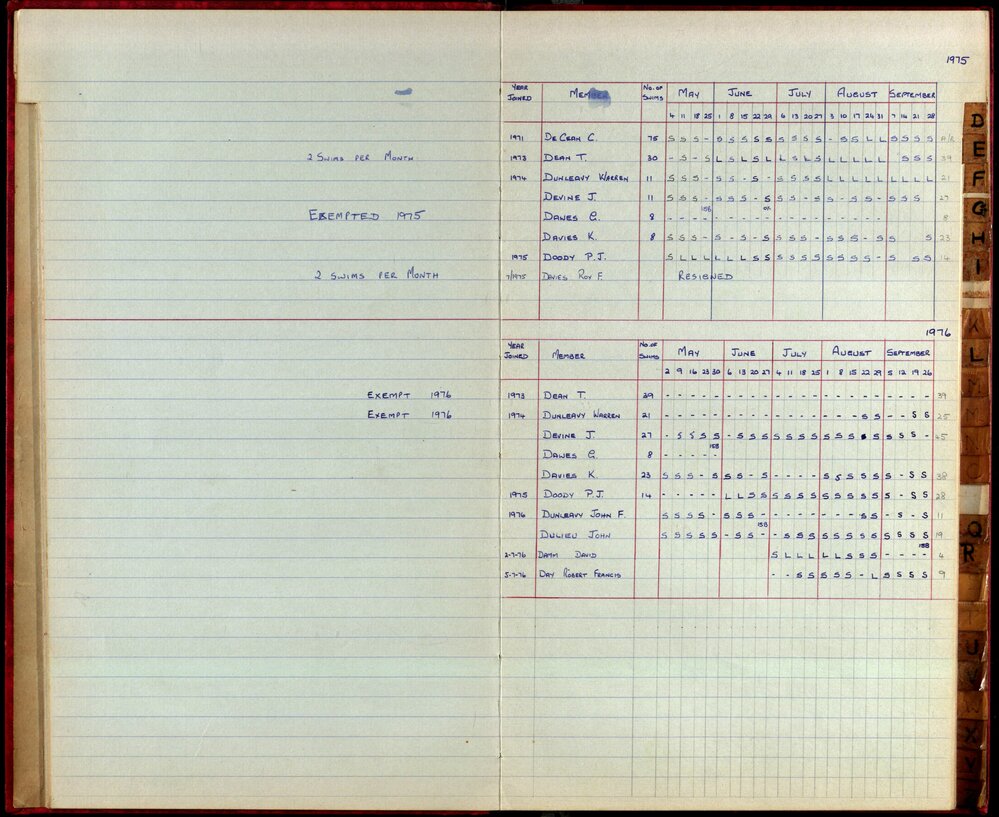 1975
YEAR JOINED MEMBER No. OF SWIMS MAY JUNE JULY AUGUST SEPTEMBER
4 11 18 25 1 8 15 22 29 6 13 20 27 3 10 17 24 31 7 14 21 28
1971 DE CEAN C. 75 S S S - S S S S S S S S S - S S L L S S S S
2 SWIMS PER MONTH 1973 DEAN T. 30 - S - S L S L S L L S L S L L L L L S S S 39
1974 DUNLEAVY WARREN 11 S S S - S S - S - S S S S L L L L L L L L L 21
DEVINE J. 11 S S S - S S S - S S S - S S - S S - S S S 27
EXEMPTED 1975 DAWES G. 8 - - - 15B - - - - - - - - - - - - - - 8
DAVIES K. 8 S S S - S - S - S S S S - S S S - S S S 23
1975 DOODY P.J. S L L L L L L S S S S S S S S S S - S S S 14
2 SWIMS PER MONTH 7/1975 DAVIES ROY F. RESIGNED
1976
YEAR JOINED MEMBER No. OF SWIMS MAY JUNE JULY AUGUST SEPTEMBER
2 9 16 23 30 6 13 20 27 4 11 18 25 1 8 15 22 29 5 12 19 26
EXEMPT 1976 1973 DEAN T. 39 - - - - - - - - - - - - - - - - - - - - - - 39
EXEMPT 1976 1974 DUNLEAVY WARREN 21 - - - - - - - - - - - - - - - - S S - - S S 25
DEVINE J. 27 - S S S S - S S S S S S S S S S S S S S S - 45
DAWES G. 8 - - - - - 15B
DAVIES K. 23 S S S - S S S - S - - - - S S S S S S - S S 38
1975 DOODY P.J. 14 - - - - - L L S S S S S S S S S S S S - S S 28
1976 DUNLEAVY JOHN F. S S S S - S S S - - - - - - - S S - S - S 11
DULIEU JOHN S S S S S - S S - 15B - S S S S S S S S S S S S 19
2-7-76 DAMM DAVID S L L L L L S S S - - - - 15B 4
5-7-76 DAY ROBERT FRANCIS - - S S S S S - L S S S S 9
D
E
F
G
H
I
K
L
M
N
O
Q
R
T
U
V
W
X
Y